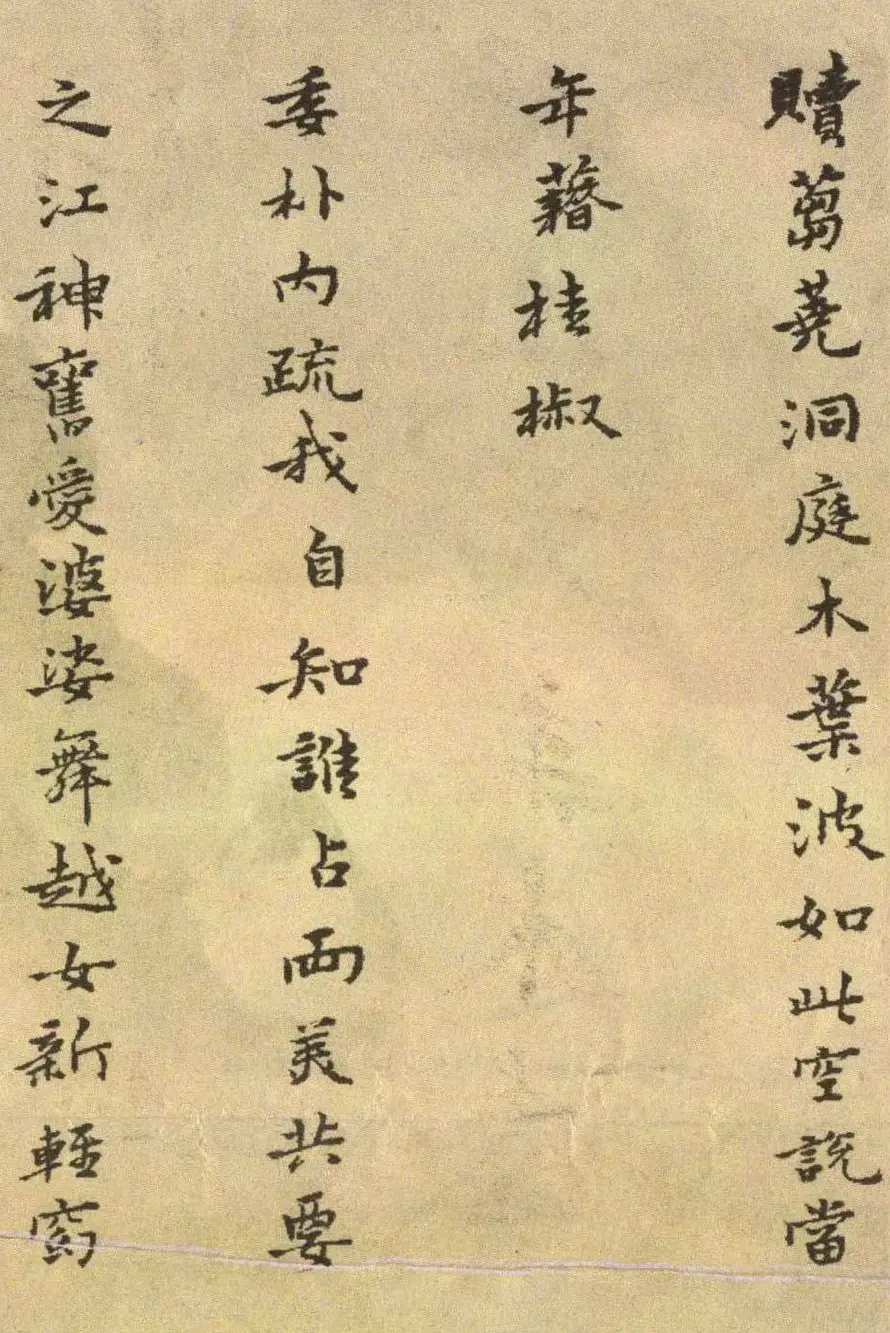 贖蒭蕘洞庭木葉波如此空說當
年藉桂椒
委朴内疏我自知誰占兩美共要
之江神舊愛婆娑舞越女新輕窈